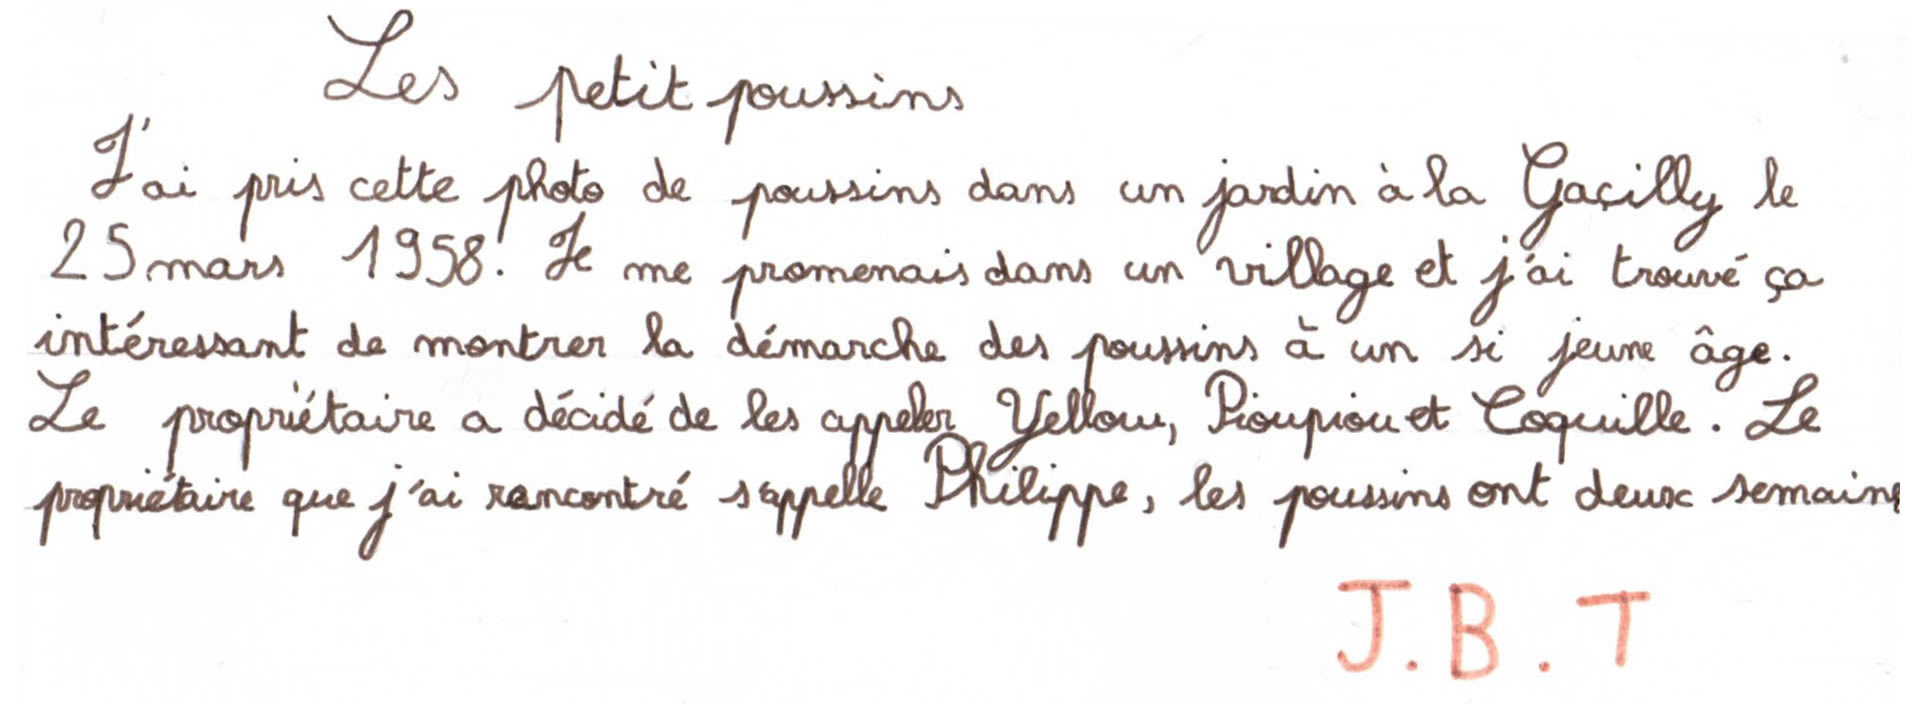 Les petit poussins
J'ai pris cette photo de poussins dans un jardin à la Gaçilly le
25 mars 1958. Je me promenais dans un village et j'ai trouvé ça
intéressant de montrer la démarche des poussins à un si jeune âge.
Le propriétaire a décidé de les appeler Yellow, Pioupiou et Coquille. Le
propriétaire que j'ai rencontré s'appelle Philippe, les poussins ont deux semaine
J.B.T